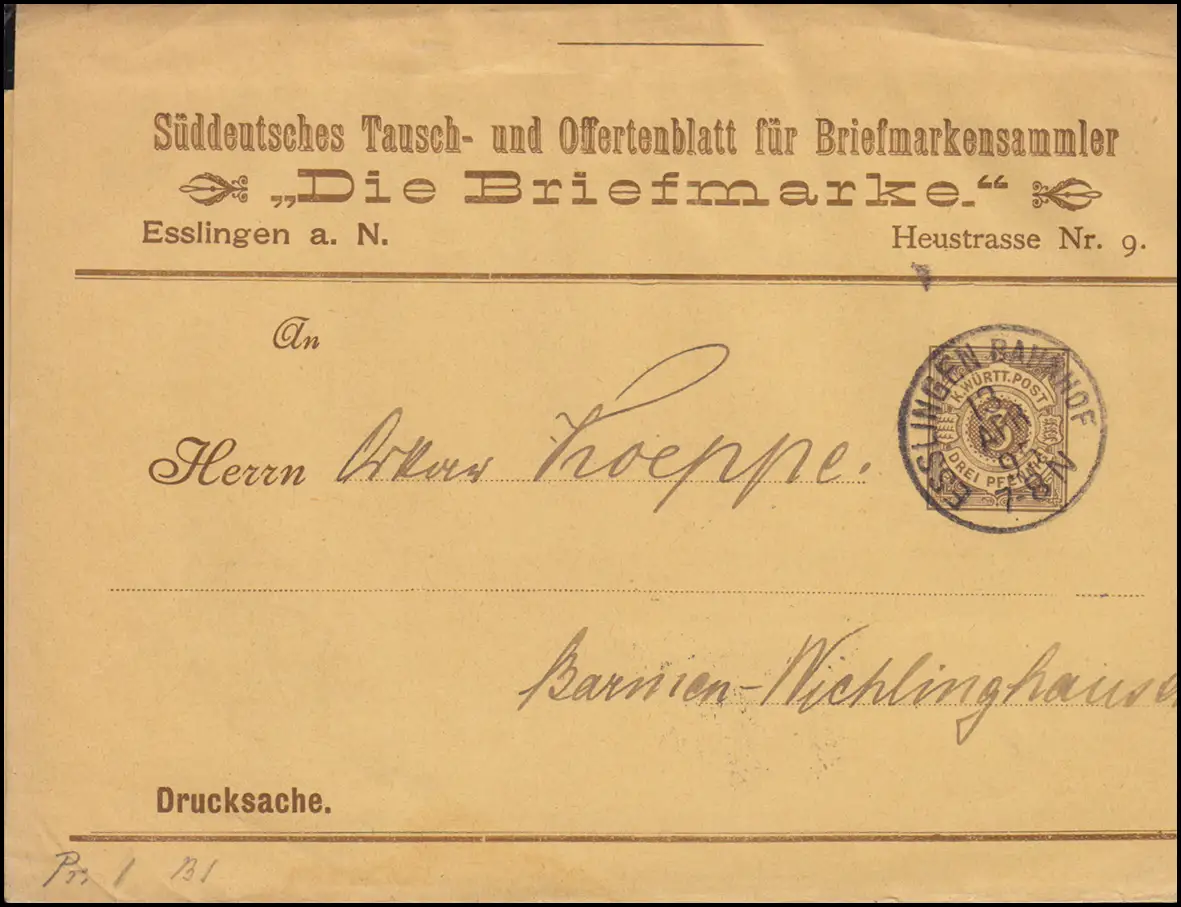 Süddeutsches Tausch- und Offertenblatt für Briefmarkensammler
„Die Briefmarke.“
Esslingen a. N. Heustrasse Nr. 9.
An
ESSLINGEN BAHNHOF
K.WÜRTT.POST
13
APR
3
DREI PFENNIG
7-8 N
Herrn Oskar Koeppe.
Barmen-Wichlinghause
Drucksache.
Pr. 1 B1